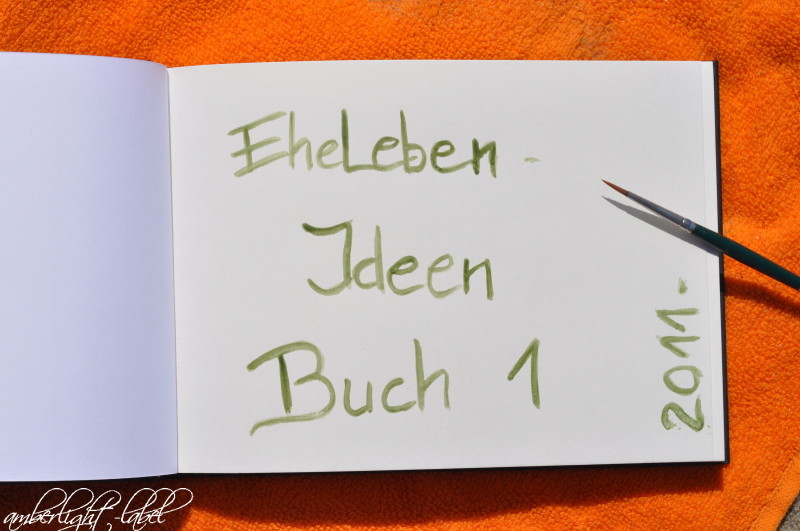 EheLeben -
Ideen
Buch 1
2011-
amberlight-label